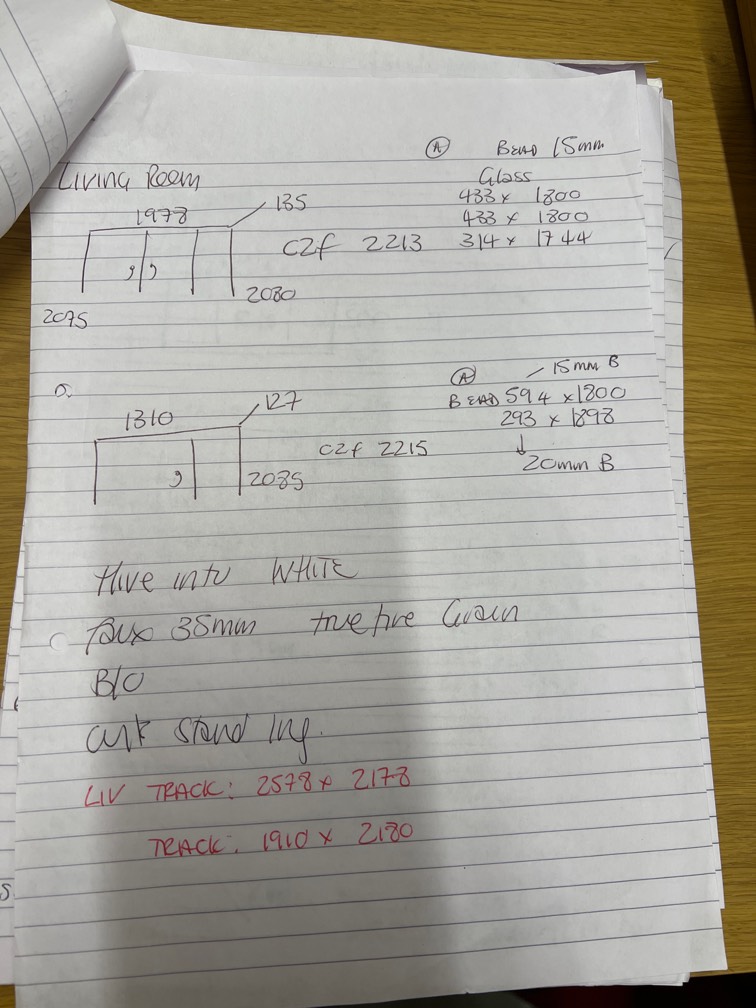 Ⓐ BEAD 15mm
Living Room
Glass
433 x 1800
1978
135
433 x 1800
c2f 2213
314 x 1744
2080
2075
Ⓐ
15mm B
BEAD 594 x 1800
1310
127
293 x 1898
c2f 2215
20mm B
2085
Hive into WHITE
faux 35mm true fire Grain
B/O
stand
LIV TRACK: 2578 x 2178
TRACK: 1910 x 2180